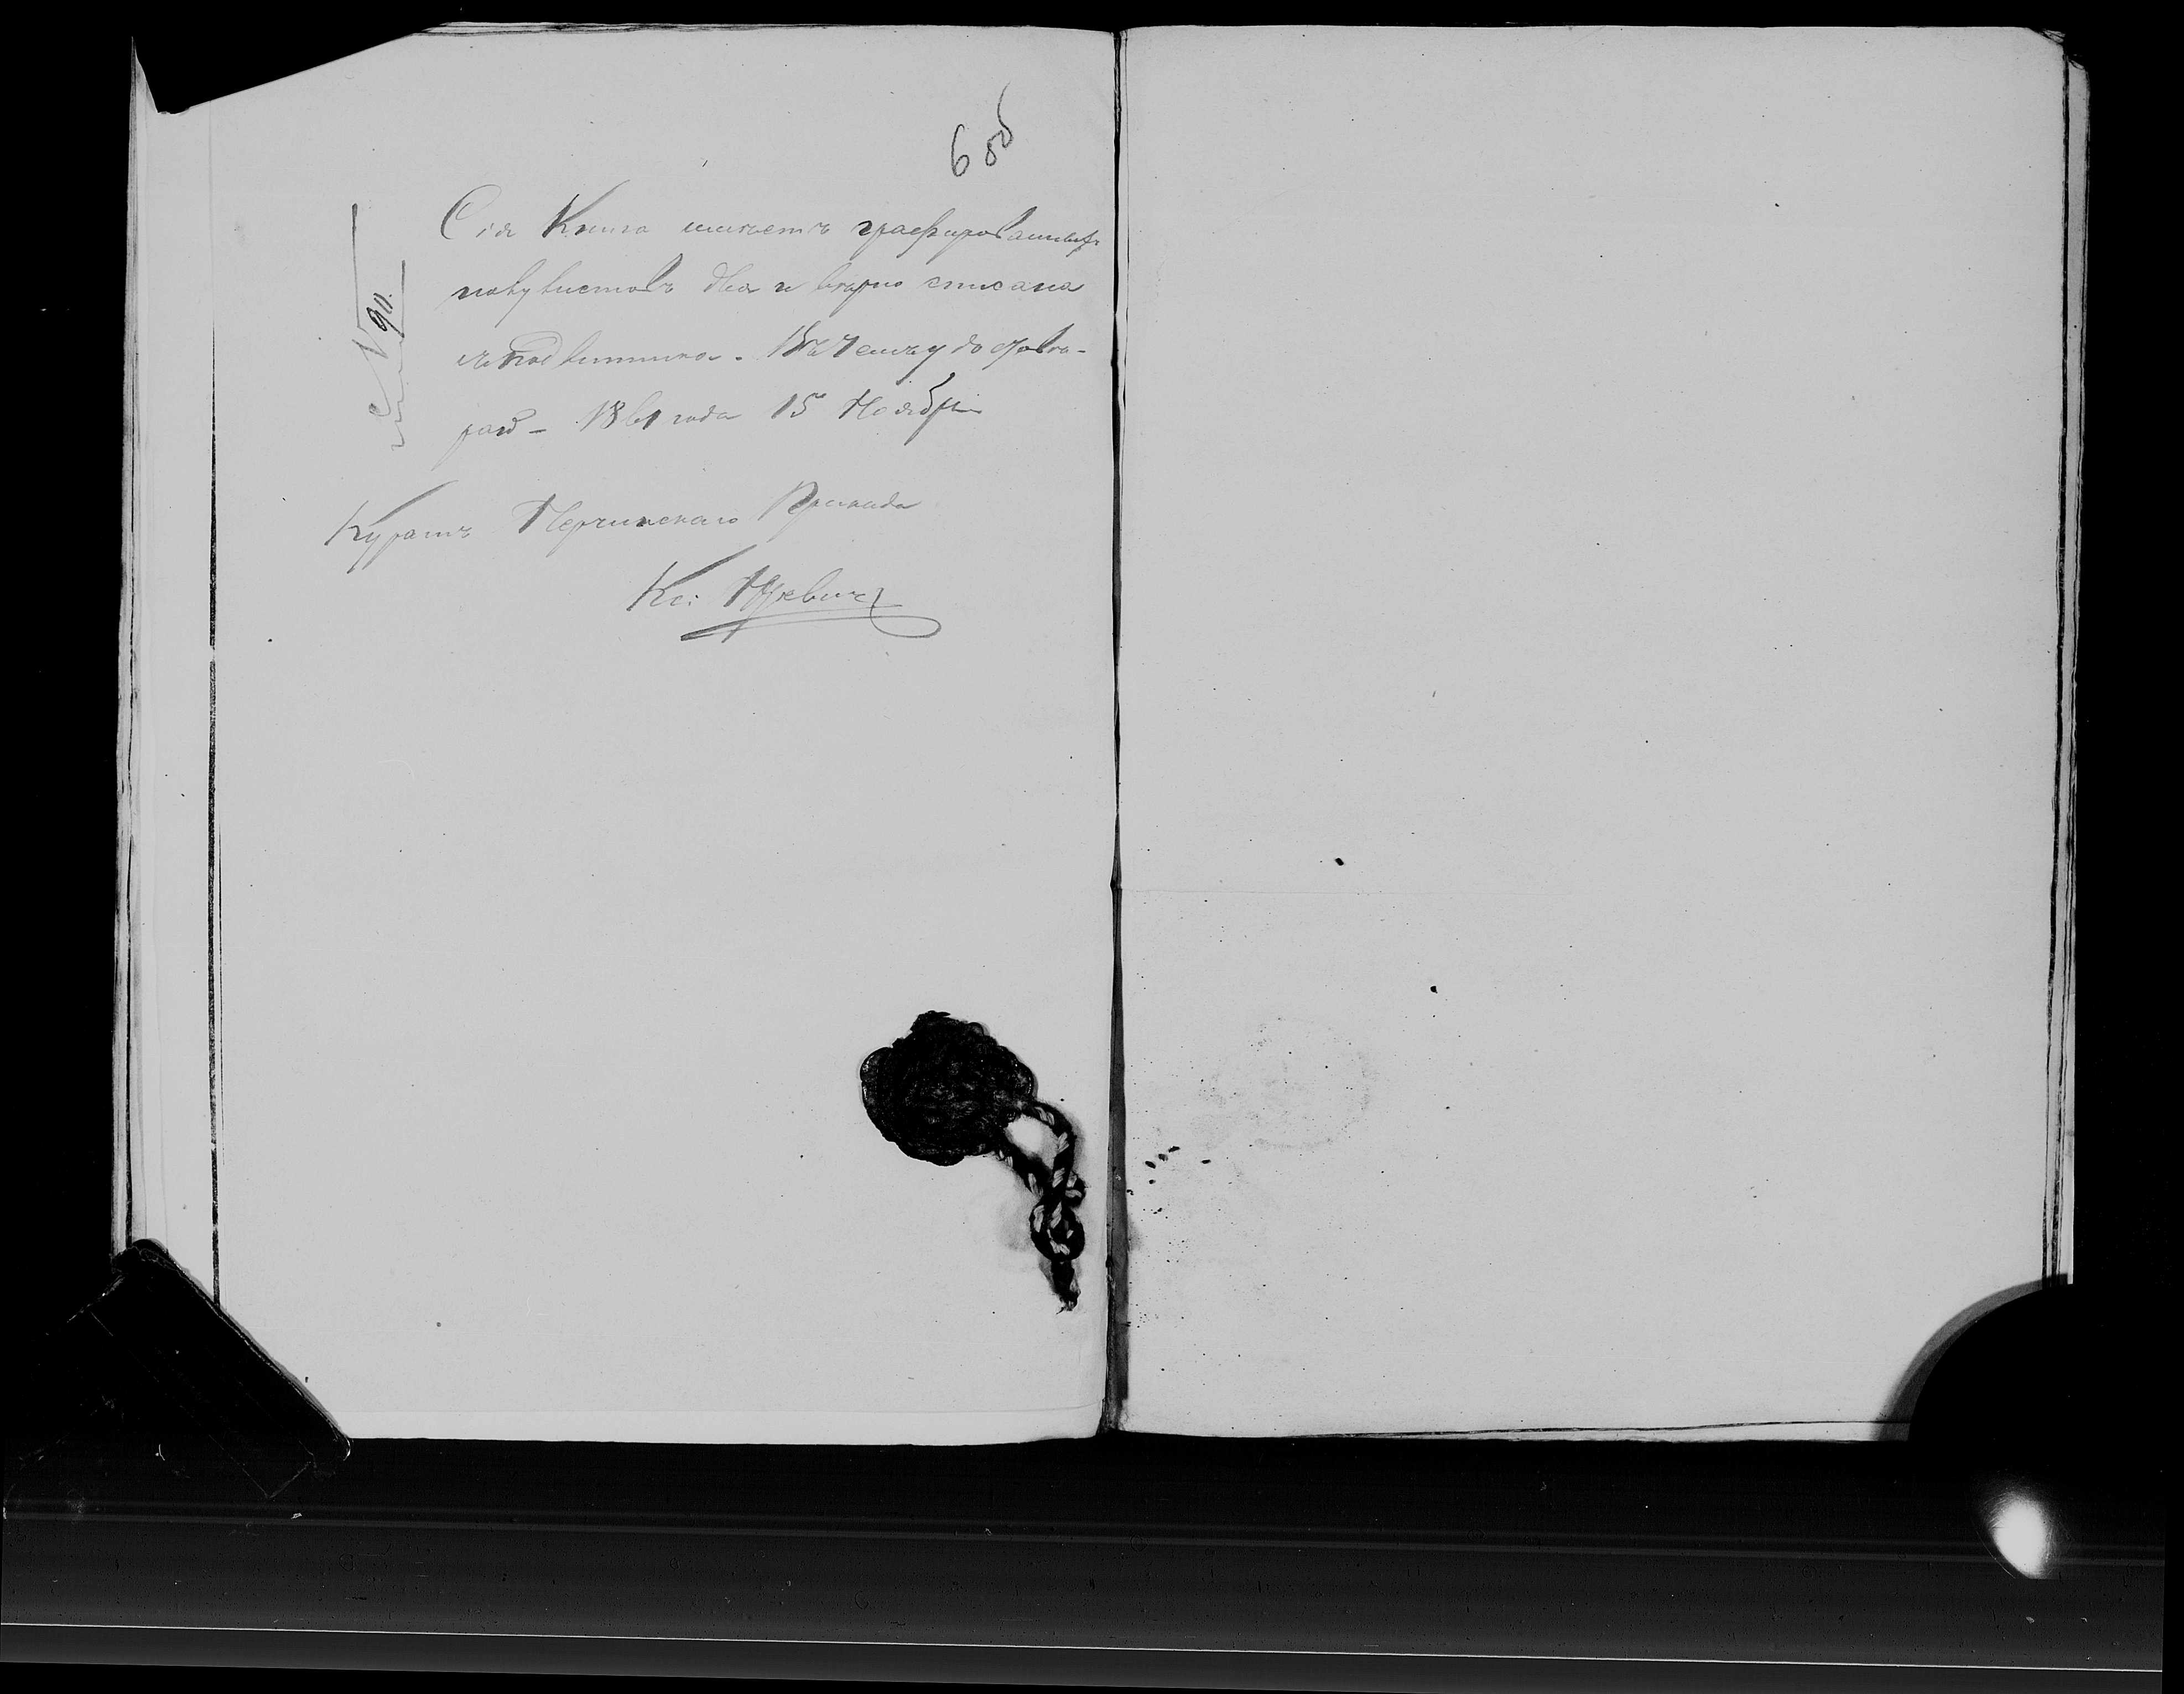 6 об
Сія Книга имѣетъ графированныхъ
полулистовъ два и вѣрно списана
съ подлинника. Въ чемъ удостовѣ-
раю – 1861 года 15 Ноября
Куратъ Нерчинскаго Прихода
Кс:
90.